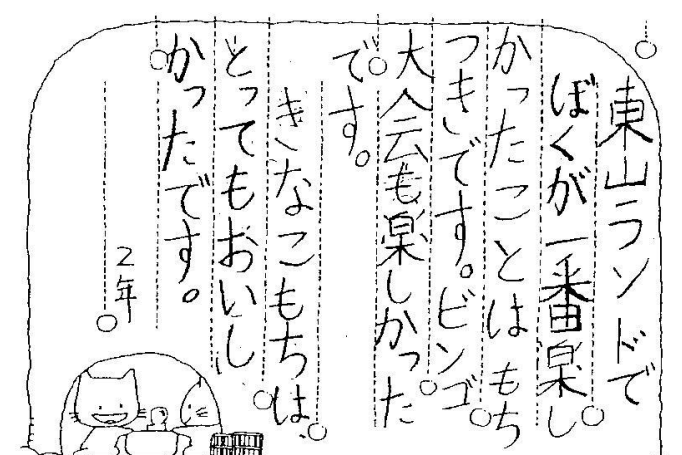 東山ランドで
ぼくが一番楽し
かったことはもち
つきです。ビンゴ
大会も楽しかった
です。
きなこもちは、
とってもおいし
かったです。
2年